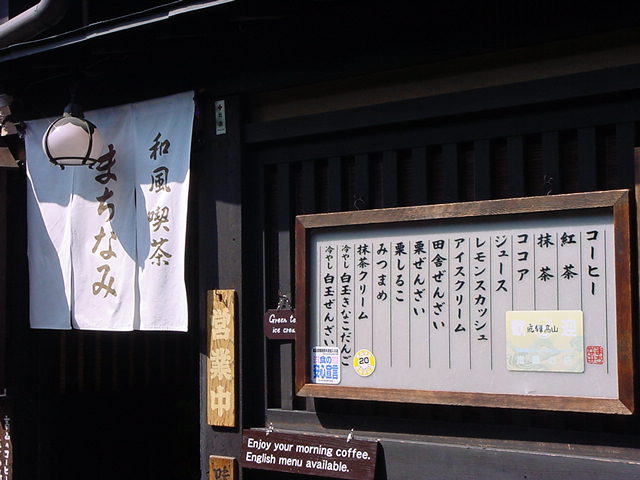 和風喫茶
まちなみ
営業中
Green te
ice crea
Enjoy your morning coffee.
English menu available.
コーヒー
紅茶
抹茶
ココア
ジュース
レモンスカッシュ
アイスクリーム
田舎ぜんざい
栗ぜんざい
栗しるこ
みつまめ
抹茶クリーム
冷やし白玉きなこだんご
冷やし白玉ぜんざい
歓迎
飛騨高山
20
食の
安心宣言